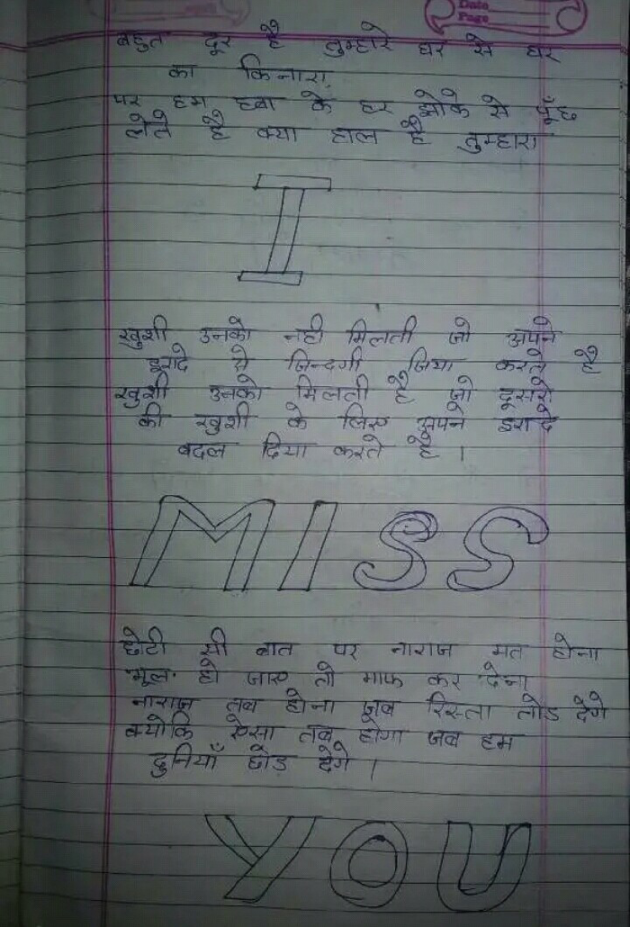 Date
Page
बहुत दूर है तुम्हारे घर से घर
का किनारा,
पर हम हवा के हर झोके से पूँछ
लेते है क्या हाल है तुम्हारा
I
खुशी उनको नही मिलती जो अपने
इरादे से जिन्दगी जिया करते है
खुशी उनको मिलती है जो दूसरो
की खुशी के लिए अपने इरादे
बदल दिया करते है ।
MISS
छोटी सी बात पर नाराज मत होना
भूल हो जाए तो माफ कर देना
नाराज तब होना जब रिस्ता तोड देगे
क्योकि ऐसा तब होगा जब हम
दुनियाँ छोड़ देगे ।
YOU